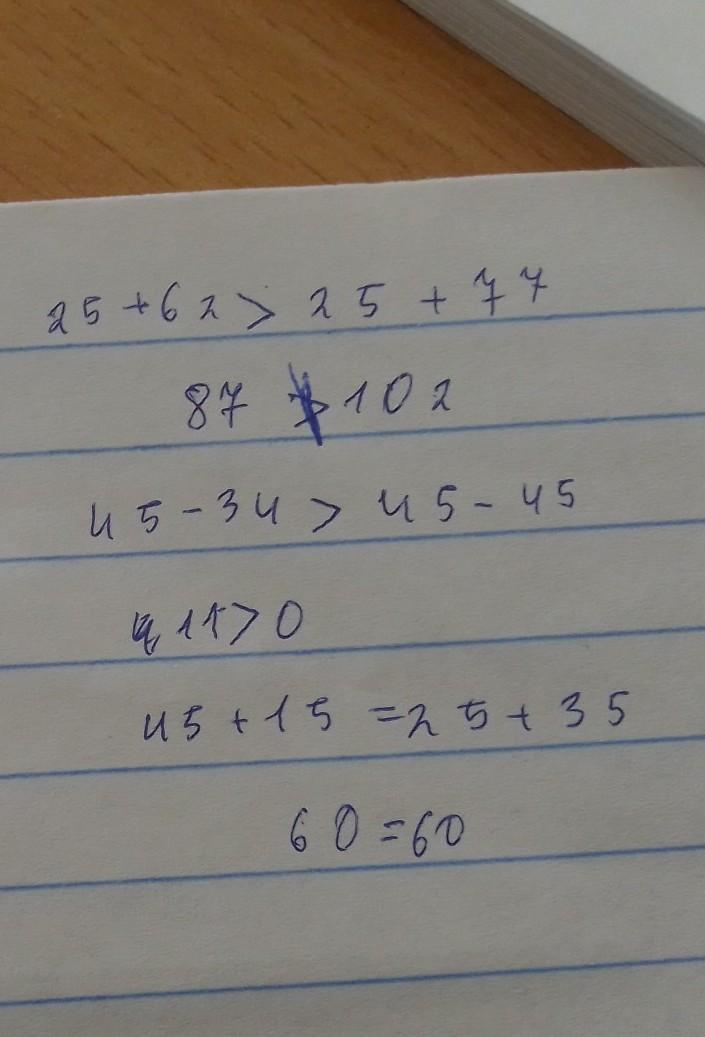 25+62>25+77
87 > 102
45-34>45-45
11>0
45+15=25+35
60=60